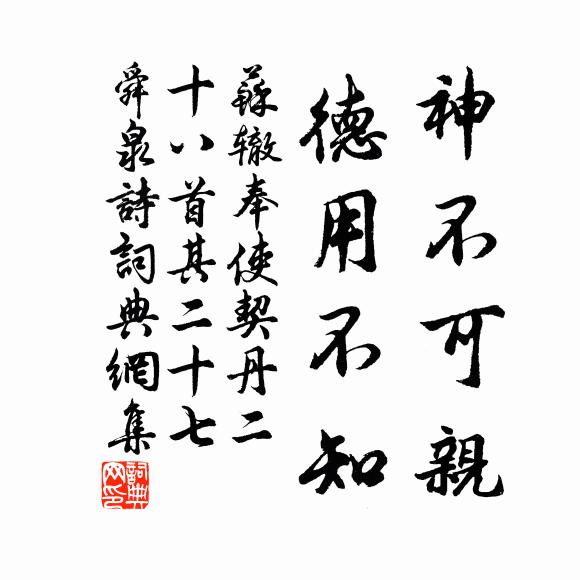 神不可親
德用不知
蘇轍奉使契丹二
十八首其二十七
舜泉詩詞典網集
詞典网印